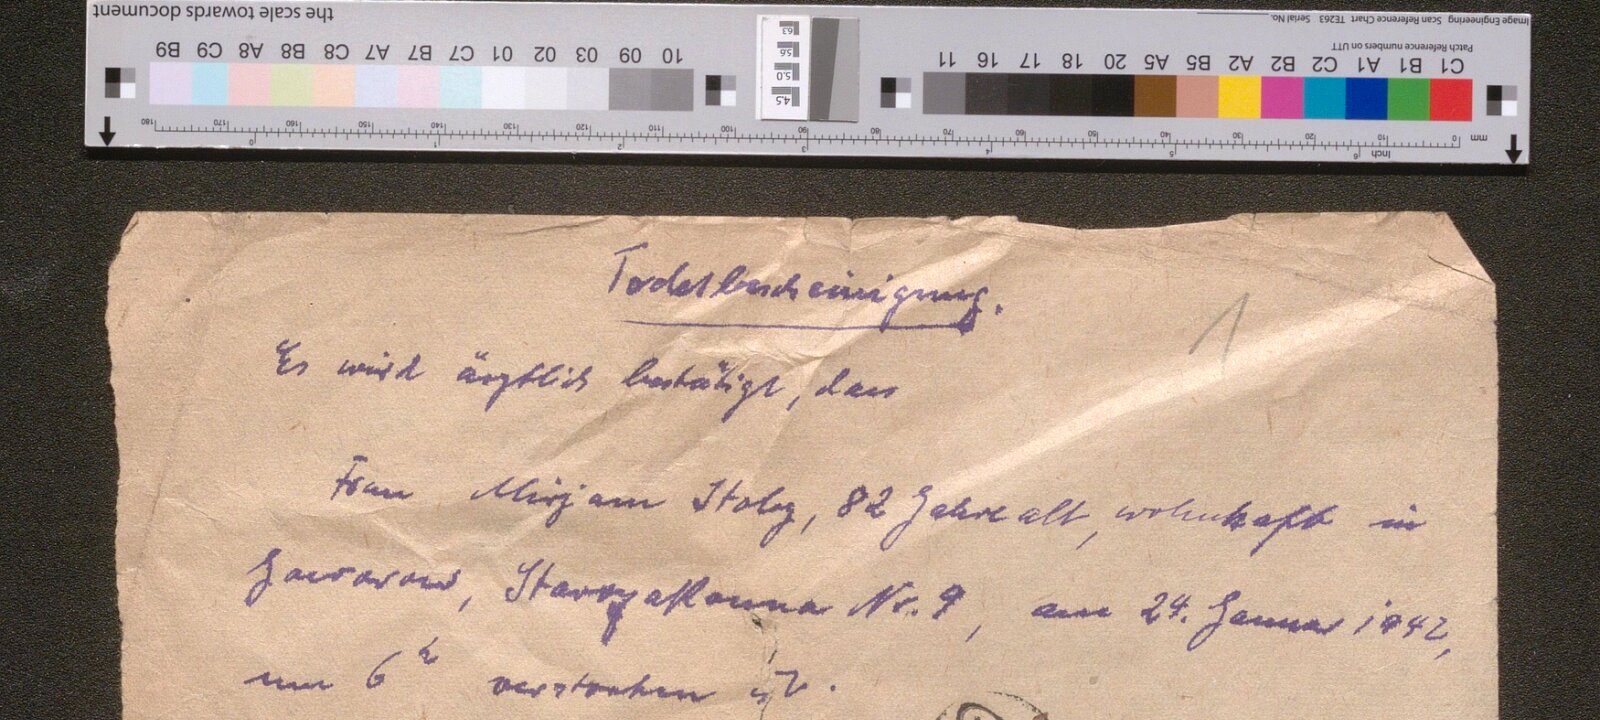 the scale towards document
Image Engineering Scan Reference Chart TE263 Serial No.
Patch Reference numbers on UTT
B9 C9 A8 B8 C8 A7 B7 C7 01 02 03 09 10
11 16 17 18 19 20 A5 B5 A2 B2 C2 A1 B1 C1
6.3
5.6
5.0
4.5
180 170 160 150 140 130 120 110 100 90 80 70 60 50 40 30 20 10 0 mm
0 1 2 3 4 5 6 Inch
Todesbescheinigung.
1
Es wird ärztlich bestätigt, dass
Frau Mirjam Stolz, 82 Jahre alt, wohnhaft in
Nr. 9, am 24. Januar 1942,
um 6 h verstorben ist.